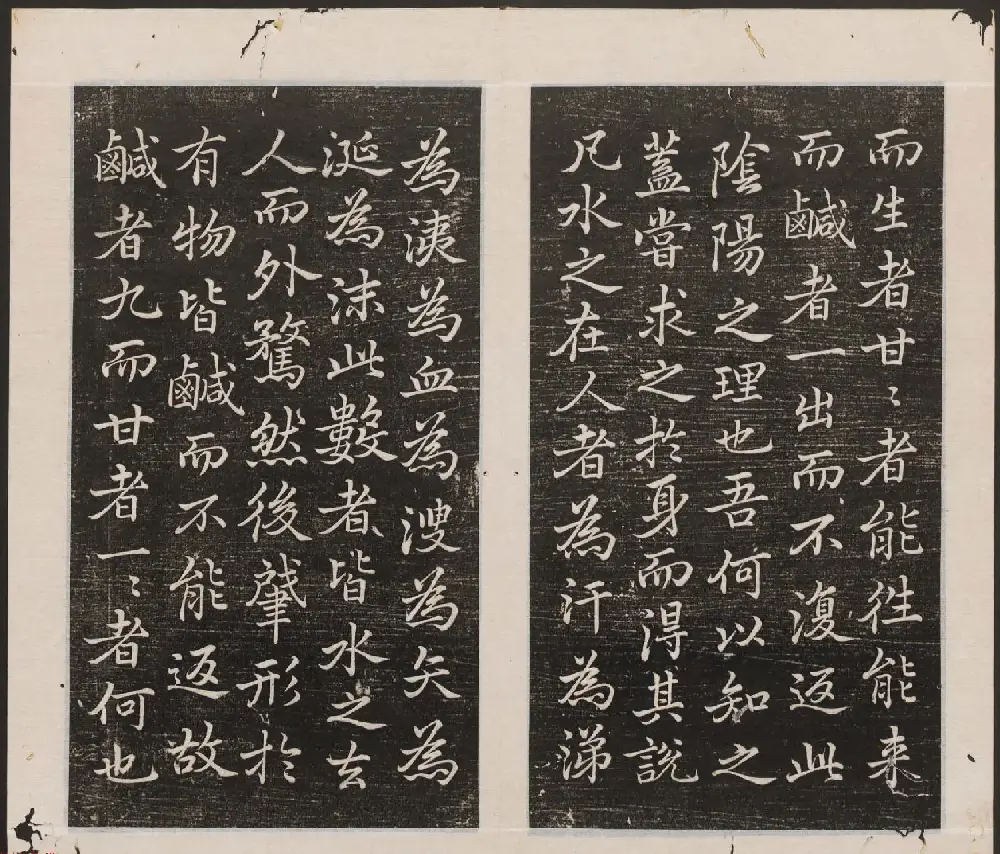 而生者甘〻者能往能来
而鹹者一出而不復返此
陰陽之理也吾何以知之
蓋嘗求之於身而得其說
凡水之在人者為汗為涕
為洟為血為溲為矢為
涎為沫此數者皆水之去
人而外騖然後肇形於
有物皆鹹而不能返故
鹹者九而甘者一〻者何也